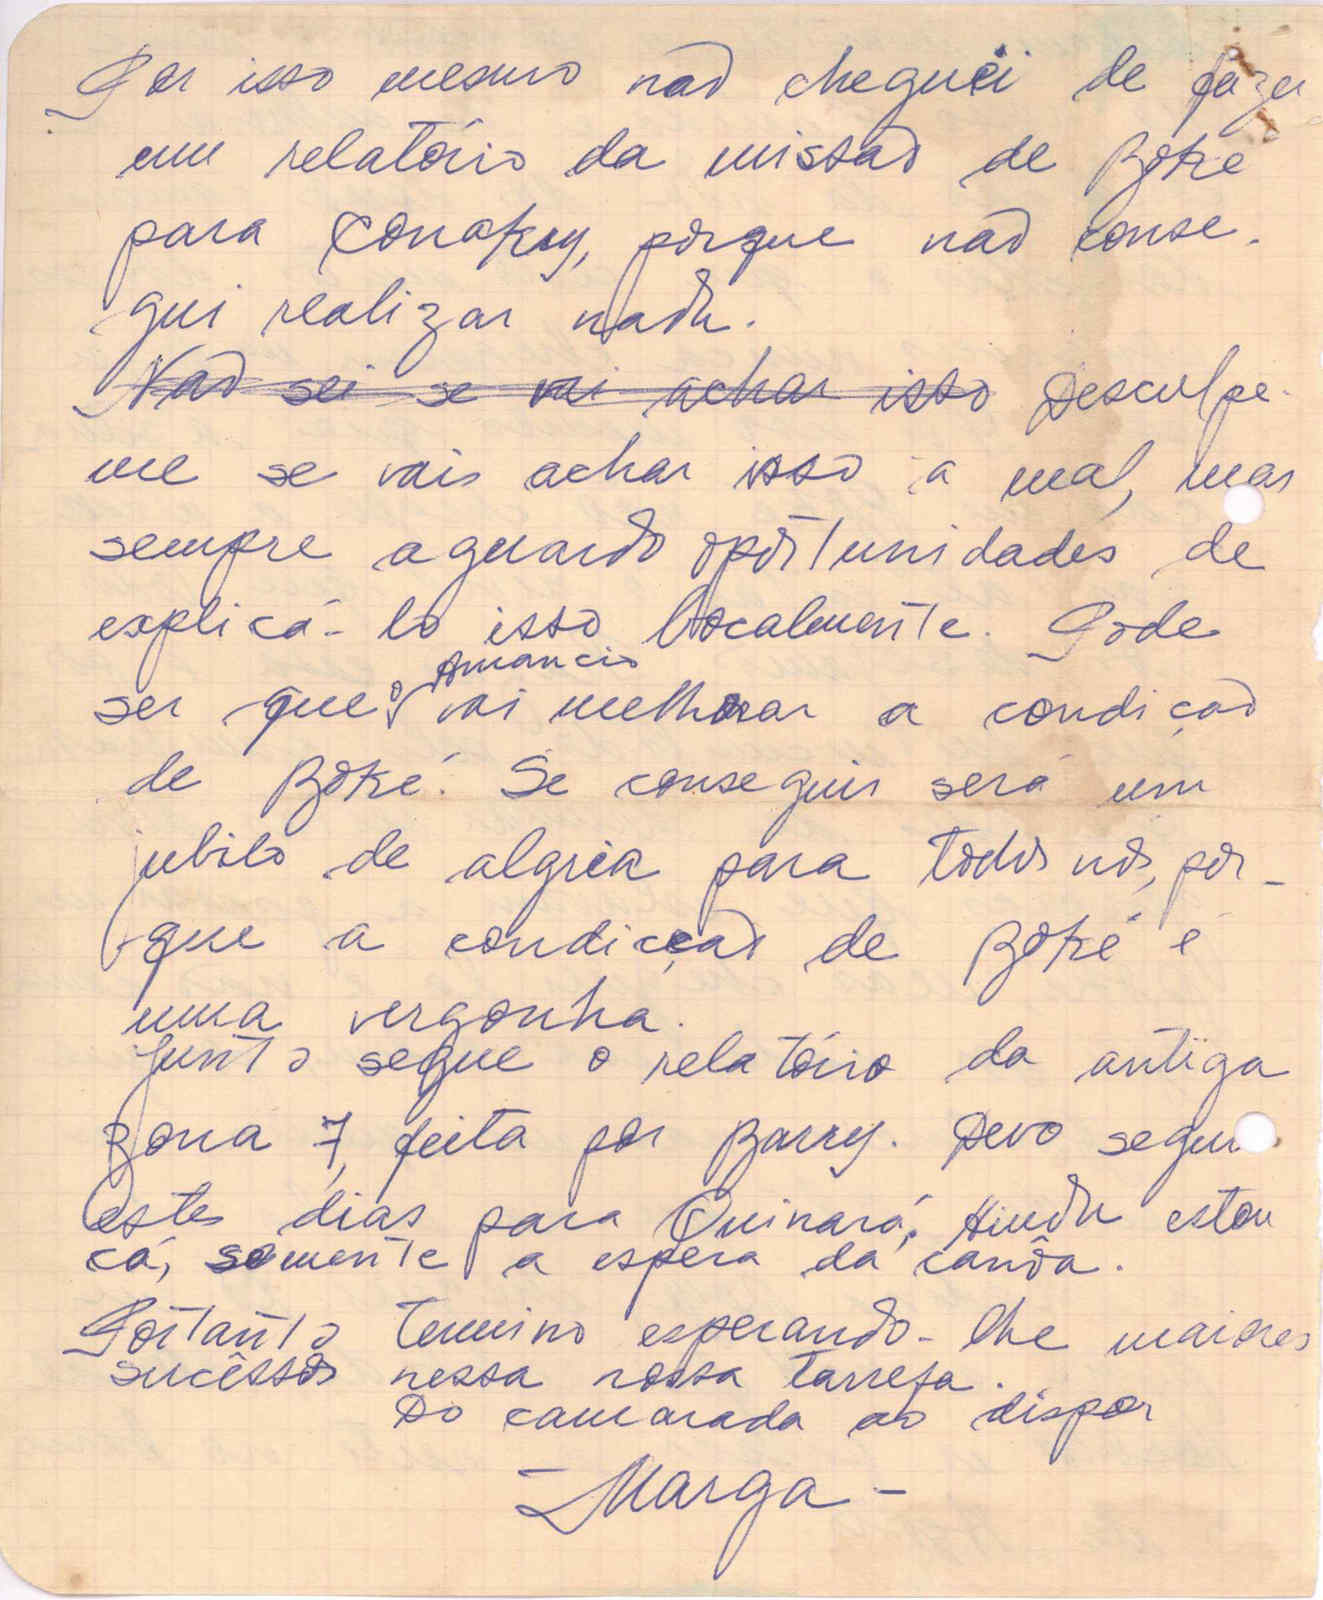 Por isso mesmo não cheguei de fazer
um relatório da missão de Boké
para Conakry, porque não conse-
gui realizar nada.
Não sei se vai achar isso Desculpe-
me se vais achar isso a mal, mas
sempre aguardo oportunidades de
explicá-lo isso localmente. Pode
ser que o Amancio vai melhorar a condição
de Boké. Se conseguir será um
jubilo de algria para todos nós, por-
que a condicção de Boké é
uma vergonha.
Junto segue o relatório da antiga
Zona 7, feita por Barry. Devo seguir
estes dias para Quinará, Ainda estou
cá, somente a espera da canôa.
Portanto termino esperando-lhe maiores
sucêssos nessa nossa tarrefa.
Do camarada ao dispor
- Marga -